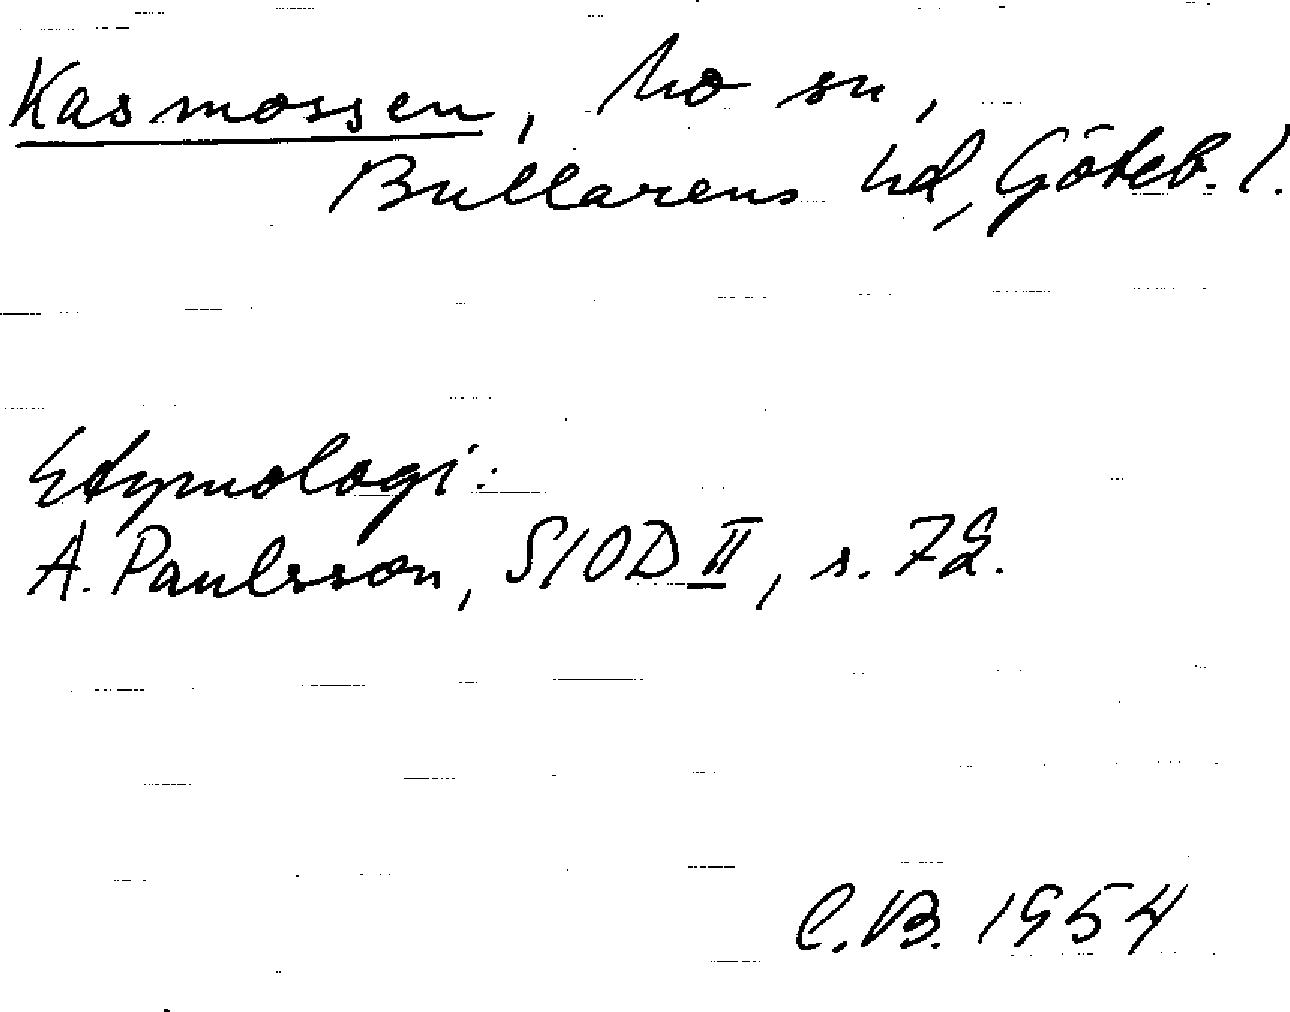 Kasmossen, Mo sn,
Bullarens hd, Göteb. l.
Etymologi:
A. Paulsson, SIOD II, s. 72.
C.B. 1954